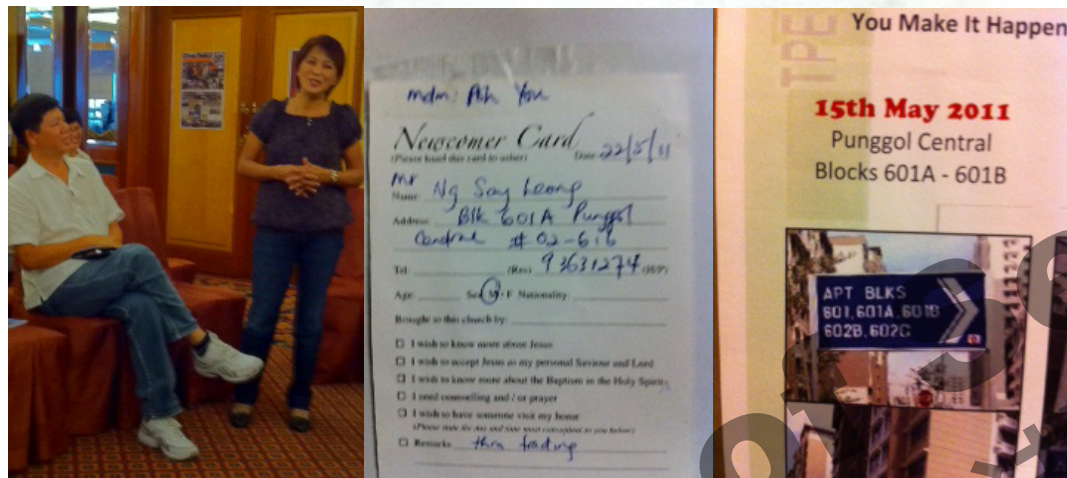 mdm: Poh Yon
Newcomer Card
(Please hand this card to usher)
Date 22/5/11
Mr
Name: Ng Say Leong
Address: Blk 601A Punggol
Central # 02-616
Tel: (Res) 93631274 (H/P)
Age: Sex M / F Nationality:
Brought to this church by:
I wish to know more about Jesus
I wish to accept Jesus as my personal Saviour and Lord
I wish to know more about the Baptism in the Holy Spirit
I need counselling and / or prayer
I wish to have someone visit my home
(Please state the day and time most convenient to you below)
Remarks thru
TPE
You Make It Happen
15th May 2011
Punggol Central
Blocks 601A - 601B
APT BLKS
601,601A,601B
602B,602C